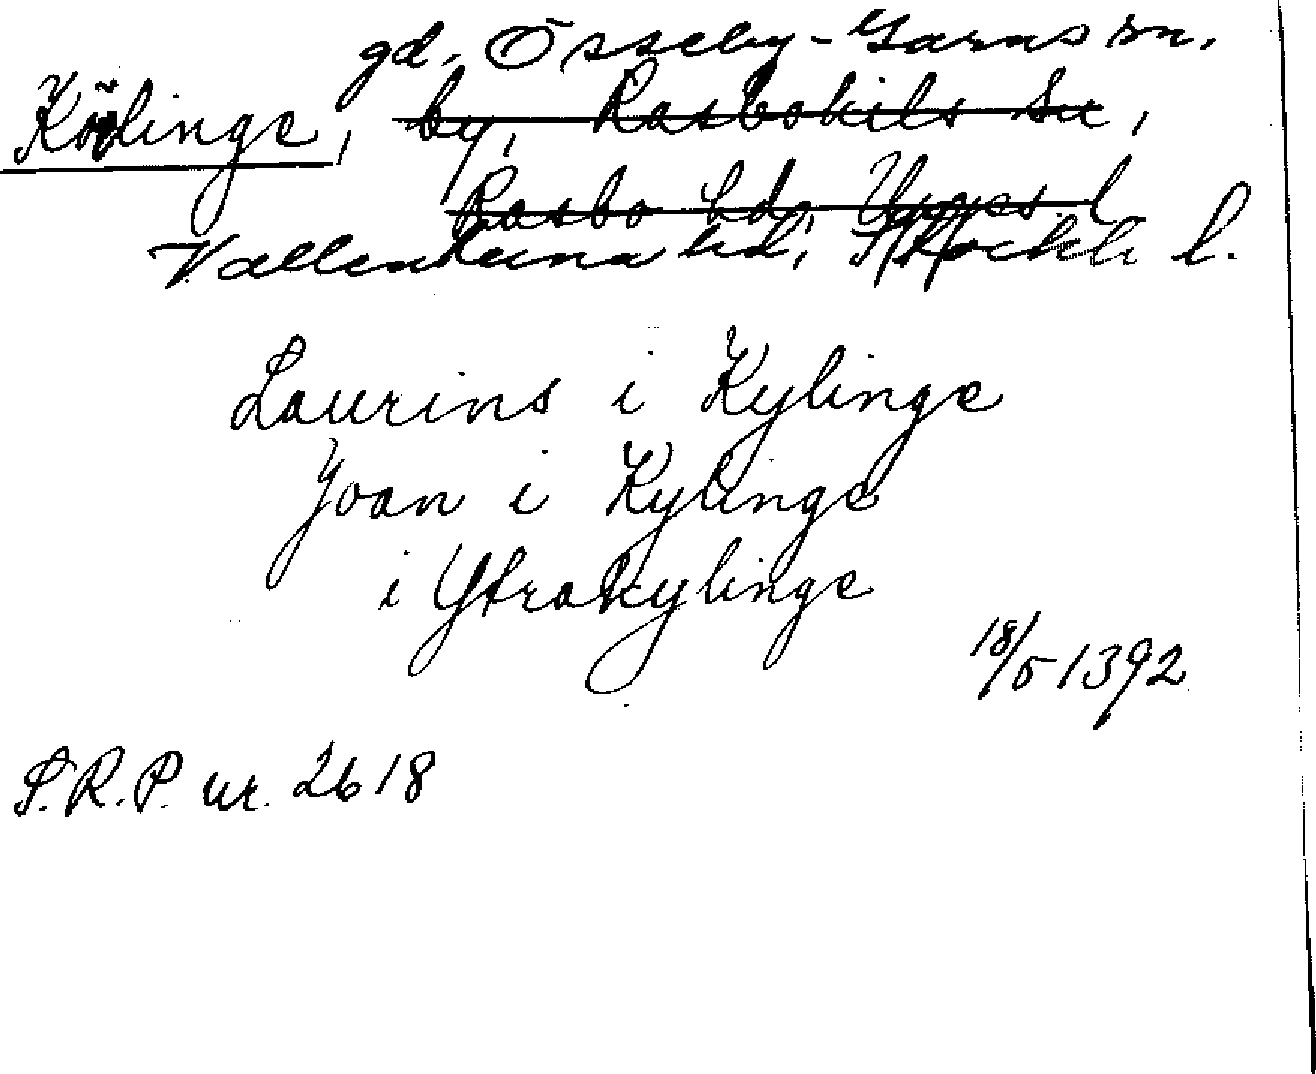 gd. Össeby-Garns sn.
Kölinge, by, Rasbokils sn,
Rasbo hd, Upps. l
Vallentuna hd, Stockh. l.
Laurins i Kylinge
Joan i Kylinge
i Ytrakylinge
18/5 1392
S.R.P. nr. 2618